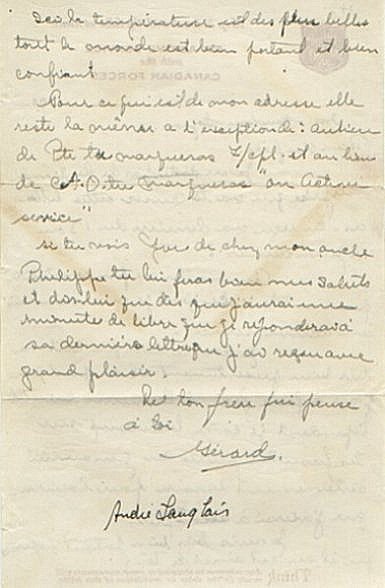 Ici la température est des plus belles
tout le monde est bien portant et bien
confiant
Pour ce qui est de mon adresse elle
reste la même a l'exception de : au lieu
de Pte tu marqueras L/cpl. et au lieu
de C.A.O. tu marqueras "on Active
service"
si tu vois de chez mon oncle
Philippe tu lui feras bien mes saluts
et dis lui que des que j'aurai une
minute de libre que je reponderai a
sa derniere lettre que j'ai reçu avec
grand plaisir.
ton frere qui pense
à toi
Gérard.
André Langlais
CANADIAN FORCES
Think